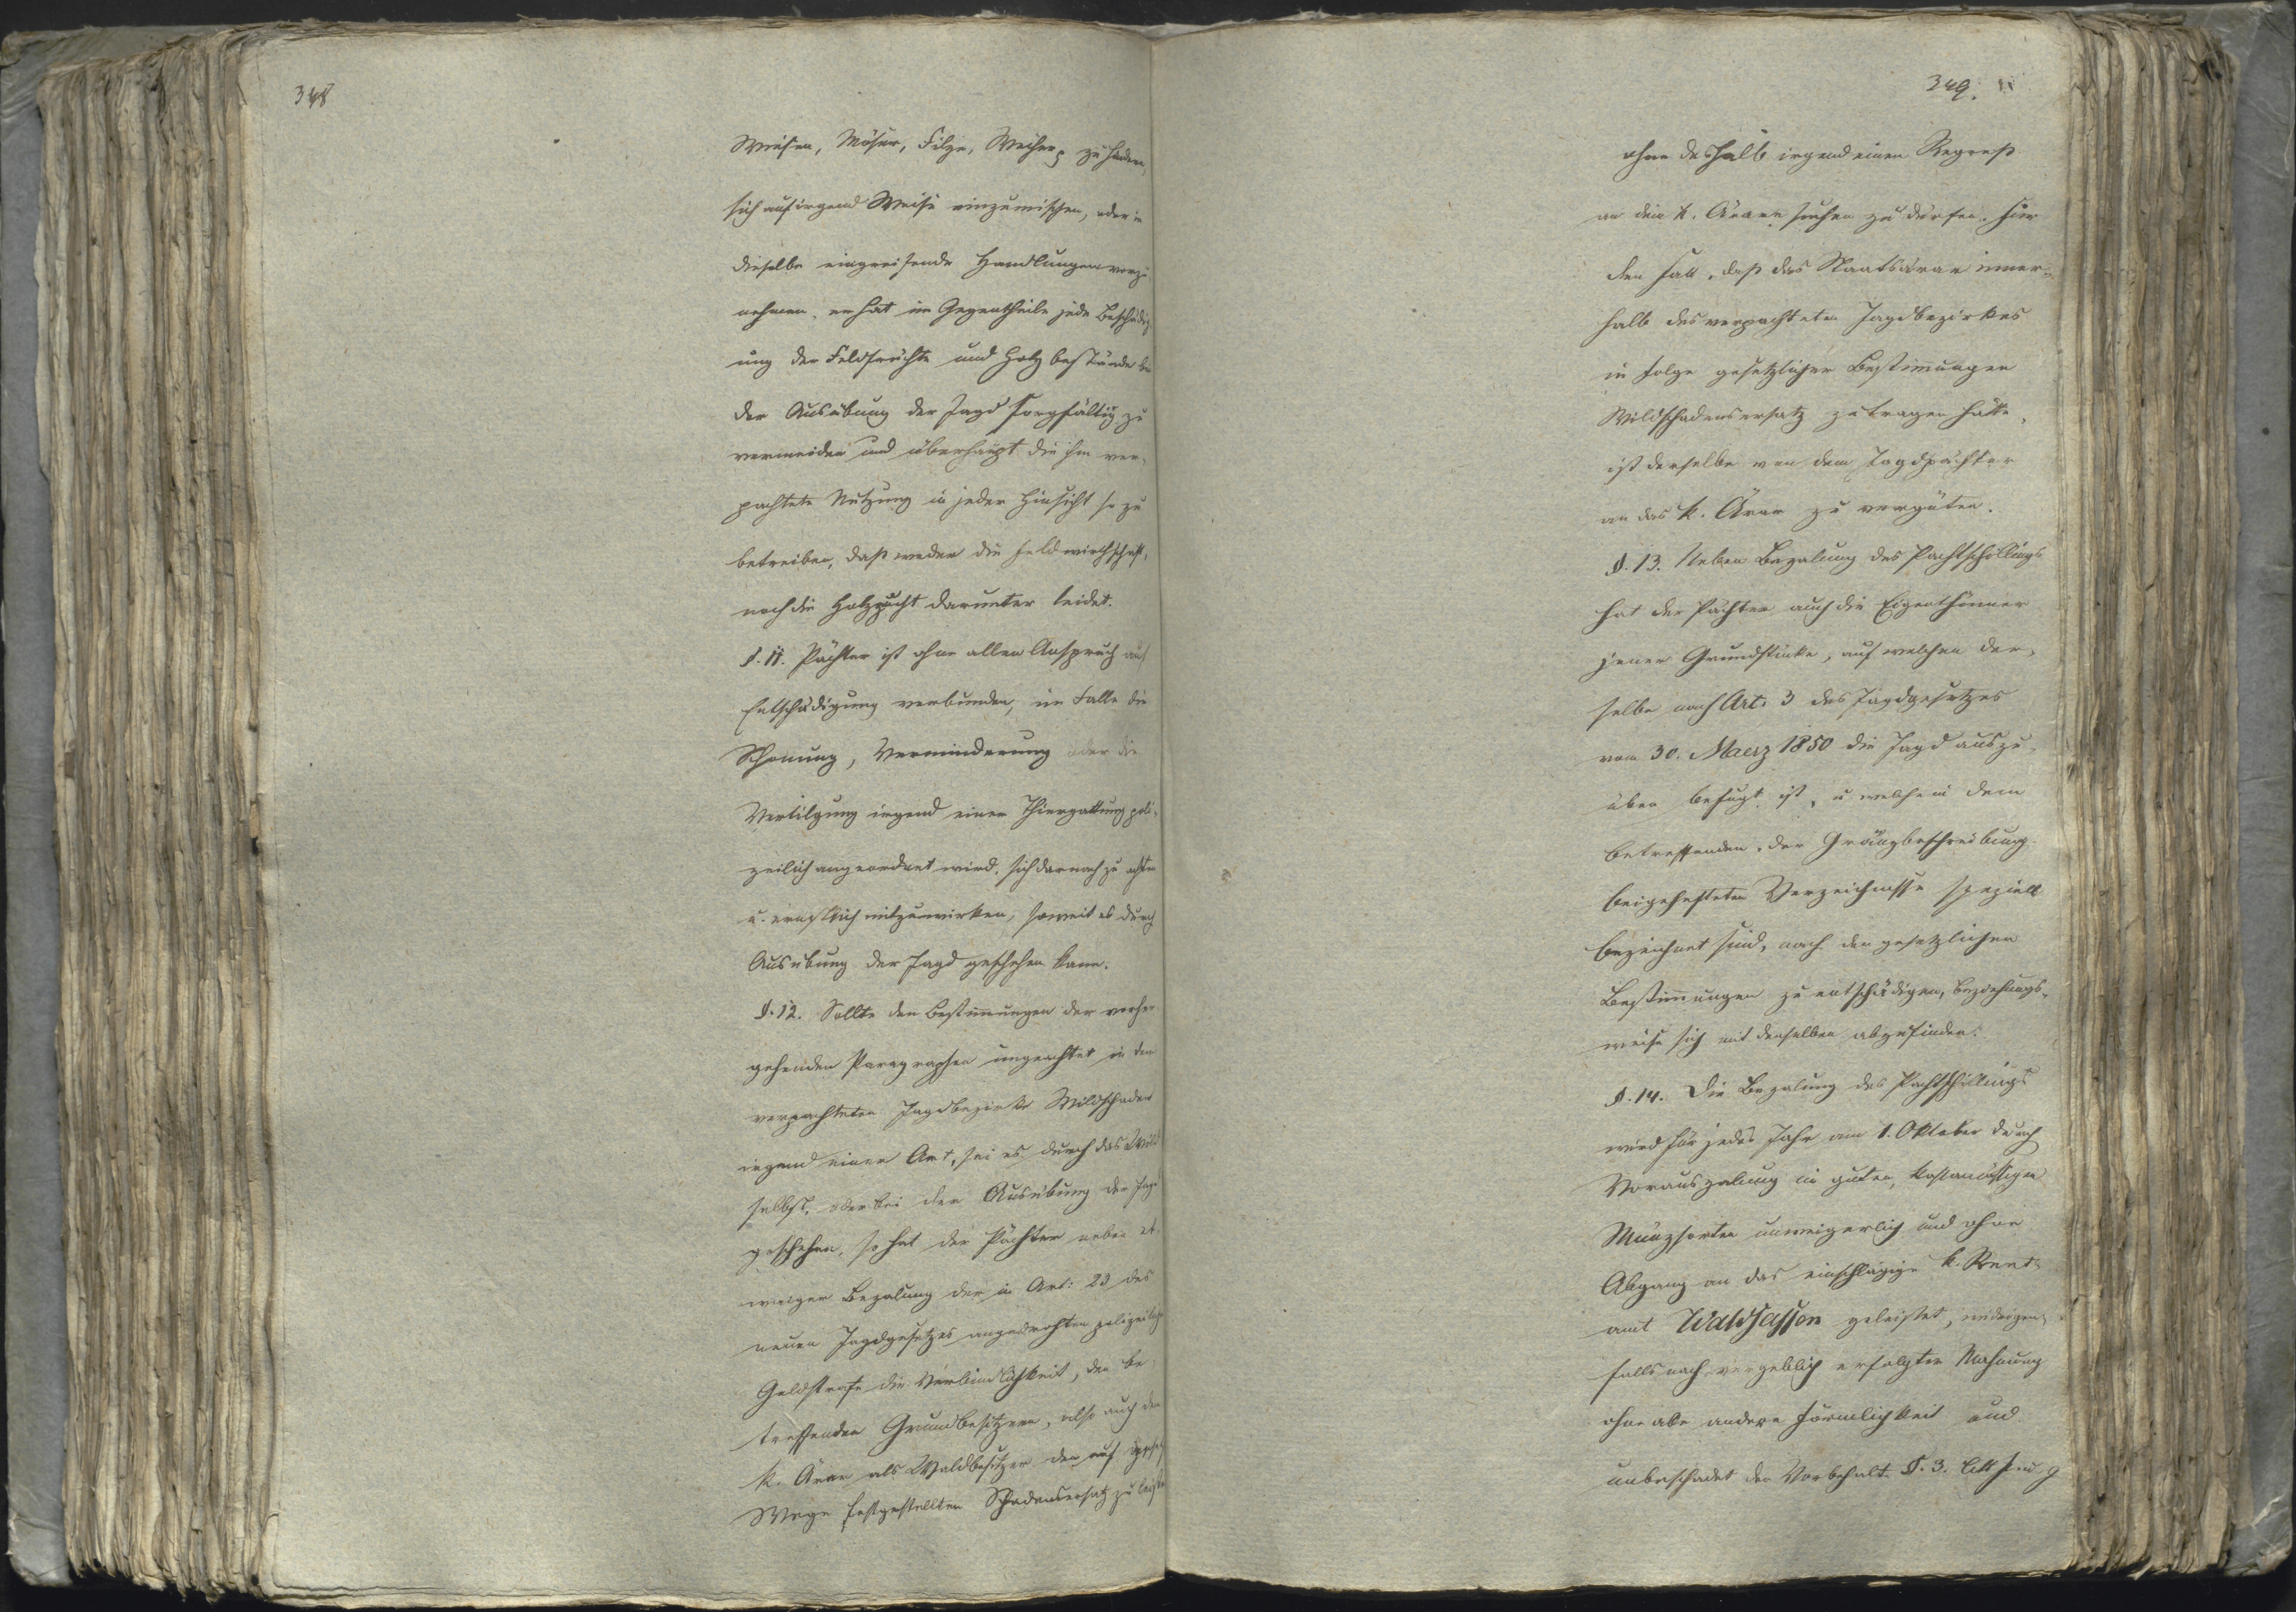 348
Wiesen, Möser, Filze, Weiher zu hindern,
sich auf irgend Weise einzumischen, oder in
dieselbe eingreifende Handlungen vorzu-
nehmen, er hat im Gegentheile jede Beschädig-
ung der Feldfrüchte und Holzbestände bei
der Ausübung der Jagd sorgfältig zu
vermeiden und überhaupt die ihm ver-
pachtete Nutzung in jeder Hinsicht so zu
betreiben, daß weder die Feldwirthschaft,
noch die Holzzucht darunter leidet.
§. 11. Pächter ist ohne allen Anspruch auf
Entschädigung verbunden, im Falle die
Schonung, Verminderung oder die
Vertilgung irgend einer Thiergattung poli-
zeilich angeordnet wird, sich darnach zu achten
u. ernstlich mitzuwirken, soweit es durch
Ausübung der Jagd geschehen kann.
§. 12. Sollte den Bestimmungen der vorher-
gehenden Paragraphen ungeachtet in dem
verpachteten Jagdbezirke Wildschaden
irgend einer Art, sei es durch das Wild
selbst, oder bei der Ausübung der Jagd
geschehen, so hat der Pächter neben et-
waiger Bezalung der in Art: 23 des
neuen Jagdgesetzes angedrohten polizeilichen
Geldstrafe die Verbindlichkeit, den be-
treffenden Grundbesitzern, also auch dem
k. Ärar als Waldbesitzer den auf
Wege festgestellten Schadensersatz zu leisten
349.
ohne deshalb irgend einen Regreß
an dem k. Ärar suchen zu dürfen. Für
den Fall, daß das Staatsärar inner-
halb des verpachteten Jagdbezirkes
in Folge gesetzlicher Bestimmungen
Wildschadensersatz zu tragen hätte,
ist derselbe von dem Jagdpächter
an das k. Ärar zu vergüten.
§. 13. Neben Bezalung des Pachtschillings
hat der Pächter auch die Eigenthümer
jener Grundstücke, auf welchen der-
selbe nach Art: 3 des Jagdgesetzes
vom 30. Maerz 1850 die Jagd auszu-
üben befugt ist, u welche in dem
betreffenden, der Gränzbeschreibung
beigehefteten Verzeichnisse speziell
bezeichnet sind, nach den gesetzlichen
Bestimmungen zu entschädigen, beziehungs-
weise sich mit denselben abzufinden.
§. 14. Die Bezalung des Pachtschillings
wird für jedes Jahr am 1. Oktober durch
Vorauszalung in guten, kassamässigen
Münzsorten unweigerlich und ohne
Abgang an das einschlägige k. Rent-
amt Waldsassen geleistet, widrigen-
falls nach vergeblich erfolgter Mahnung
ohne alle andere Förmlichkeit und
unbeschadet der Vorbehalt. §. 3. litt f und g